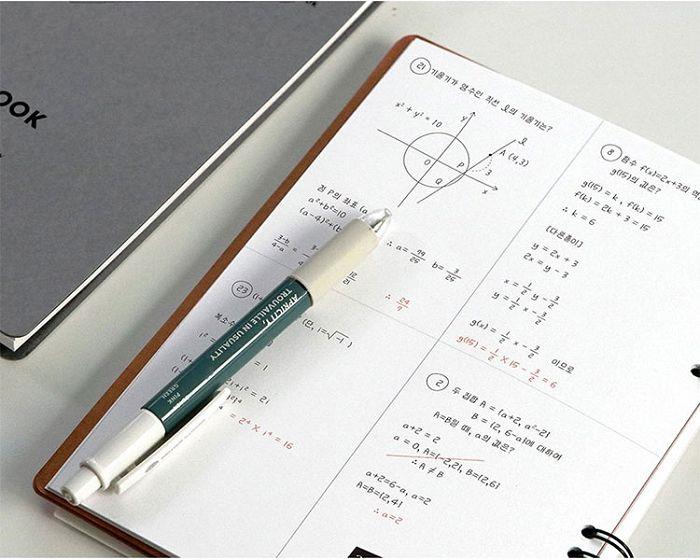 OOK
㉑ 기울기가 양수인 직선 l의 기울기는?
x² + y² = 10
y
l
A (4,3)
O
P
3
Q
x
점 P의 좌표 (a,
a²+b²=10
(a-4)²+(b
(3-b)/(4-a) = 
∴ a= 79/25 b= 3/25
∴
㉓ (1+
복소수
i=√-1)
i² =
= 2i
= 2⁴ × i⁴ = 16
APRICITY,
TROUVAILLE IN USUALITY
PINK
GREEN
⑧ 함수 f(x)=2x+3의 역
g(15)의 값은?
g(15) = k , f(k) = 15
f(k) = 2k + 3 = 15
∴ k = 6
[다른풀이]
y = 2x + 3
2x = y - 3
x = 1/2 y - 3/2
y = 1/2 x - 3/2
g(x) = 1/2 x - 3/2 이므로
g(15) = 1/2 × 15 - 3/2 = 6
② 두 집합 A = {a+2, a²-2}
B = {2, 6-a}에 대하여
A=B일 때, a의 값은?
a+2 = 2
a = 0, A={-2,2}, B={2,6}
∴ A ≠ B
a+2=6-a, a=2
A=B={2,4}
∴ a=2